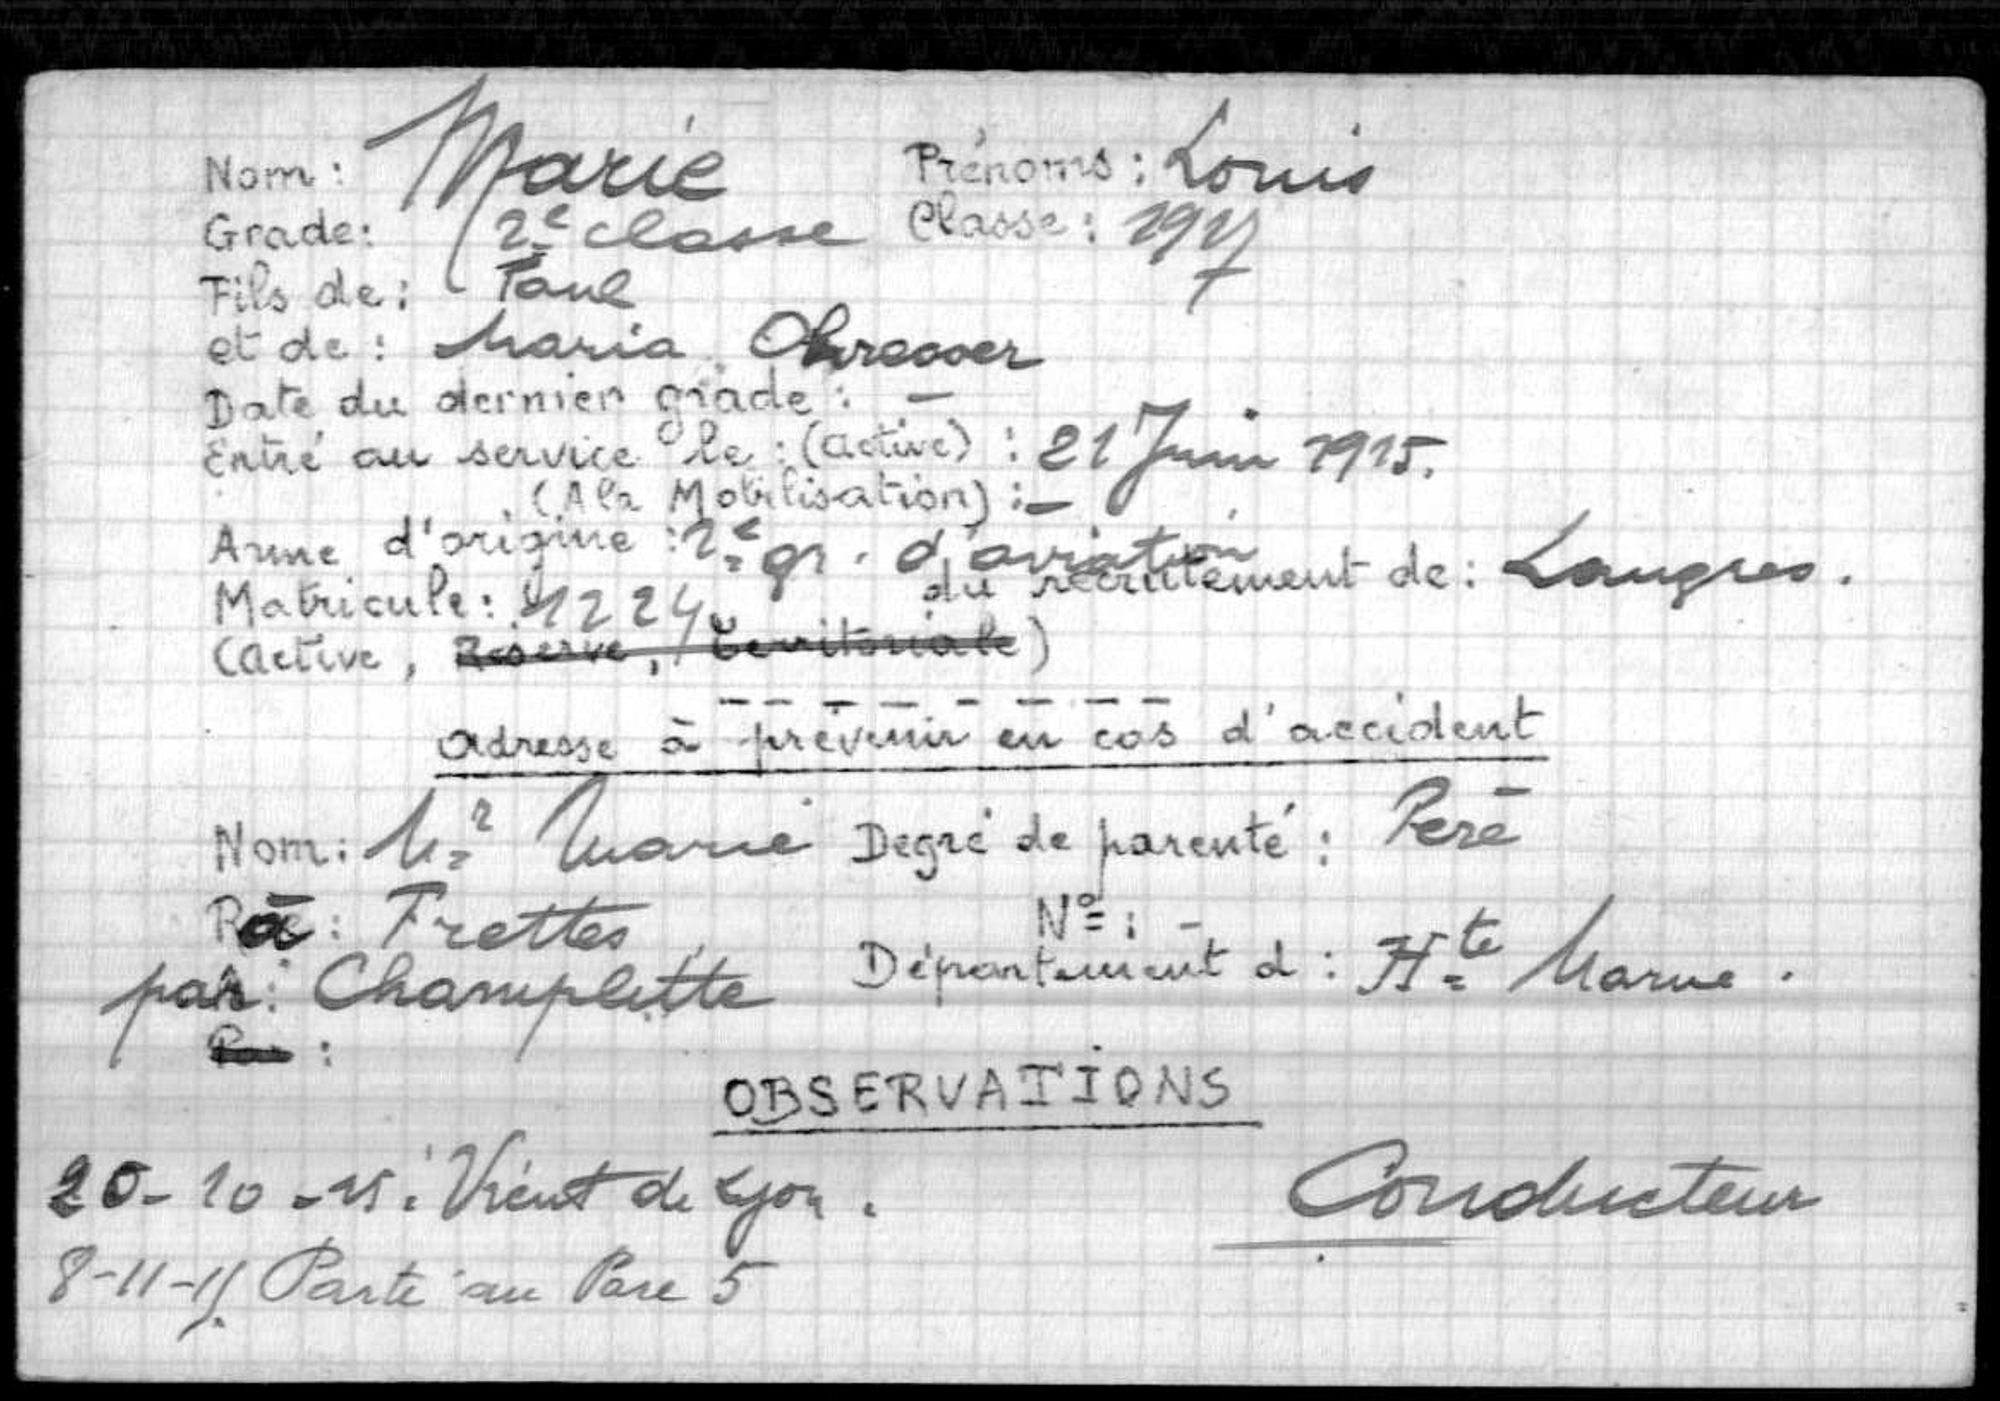 Nom : Marie Prénoms : Louis
Grade : 2e classe Classe : 1917
Fils de : Paul
et de : Maria
Date du dernier grade : —
Entré au service le : (active) : 21 Juin 1915.
(A la Mobilisation) : —
Arme d'origine : 2e gr. d'aviation
Matricule : 1224 du recrutement de : Langres.
(Active, Réserve, Territoriale)
Adresse à prévenir en cas d'accident
Nom : Mr Marie Degré de parenté : Père
à : Frettes N° : -
par : Champlitte Département d : Hte Marne.
OBSERVATIONS
20-10-15 : Vient de Lyon. Conducteur
8-11-15 Parti au Parc 5